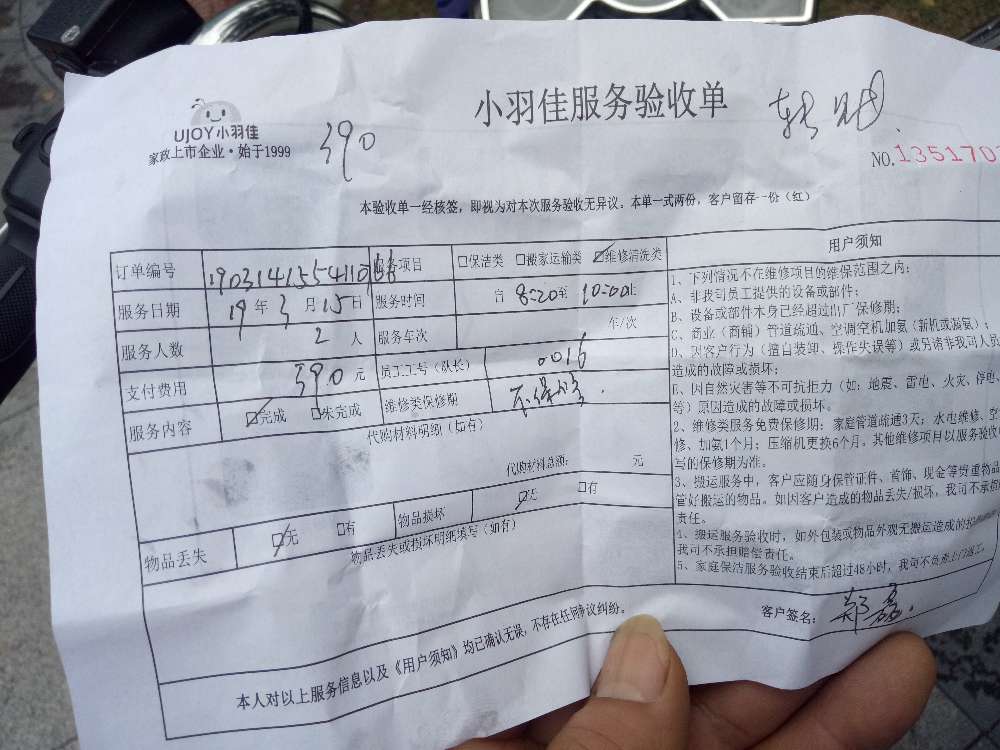 小羽佳服务验收单
UJOY小羽佳
家政上市企业·始于1999
390
NO.1351703
本验收单一经核签,即视为对本次服务验收无异议。本单一式两份,客户留存一份(红)
订单编号 服务项目 □保洁类 □搬家运输类 ☑维修清洗类
服务日期 19年3月15日 服务时间 自8:20至10:00止
服务人数 2人 服务车次 车/次
支付费用 390元 员工工号(队长) 0016
服务内容 ☑完成 □未完成 维修类保修期 不保修
代购材料明细(如有)
代购材料总额: 元
物品丢失 ☑无 □有 物品损坏 ☑无 □有
物品丢失或损坏明细填写(如有)
用户须知
1、下列情况不在维修项目的维保范围之内:
A、非我司员工提供的设备或部件;
B、设备或部件本身已经超过出厂保修期;
C、商业(商铺)管道疏通、空调空机加氨(新机或漏氨);
D、因客户行为(擅自装卸、操作失误等)或另请非我司人员
造成的故障或损坏;
E、因自然灾害等不可抗拒力(如:地震、雷电、火灾、停电、
等)原因造成的故障或损坏。
2、维修类服务免费保修期:家庭管道疏通3天;水电维修、空
修、加氨1个月;压缩机更换6个月。其他维修项目以服务验收
写的保修期为准。
3、搬运服务中,客户应随身保管证件、首饰、现金等贵重物品
管好搬运的物品。如因客户造成的物品丢失/损坏,我司不承担
责任。
4、搬运服务验收时,如外包装或物品外观无搬运造成的
我司不承担赔偿责任。
5、家庭保洁服务验收结束后超过48小时,我司不负责上门返工。
本人对以上服务信息以及《用户须知》均已确认无误,不存在任何争议纠纷。
客户签名:郑磊